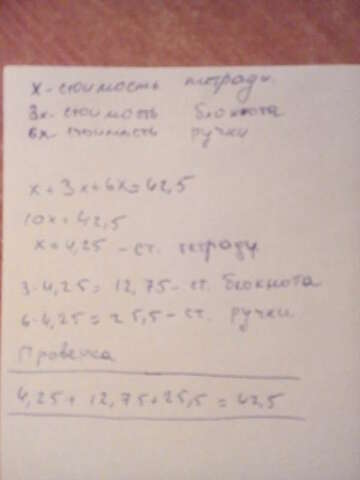 x - стоимость тетради.
3x - стоимость блокнота
6x - стоимость ручки
x + 3x + 6x = 42,5
10x = 42,5
x = 4,25 - ст. тетради
3·4,25 = 12,75 - ст. блокнота
6·4,25 = 25,5 - ст. ручки.
Проверка
4,25 + 12,75 + 25,5 = 42,5